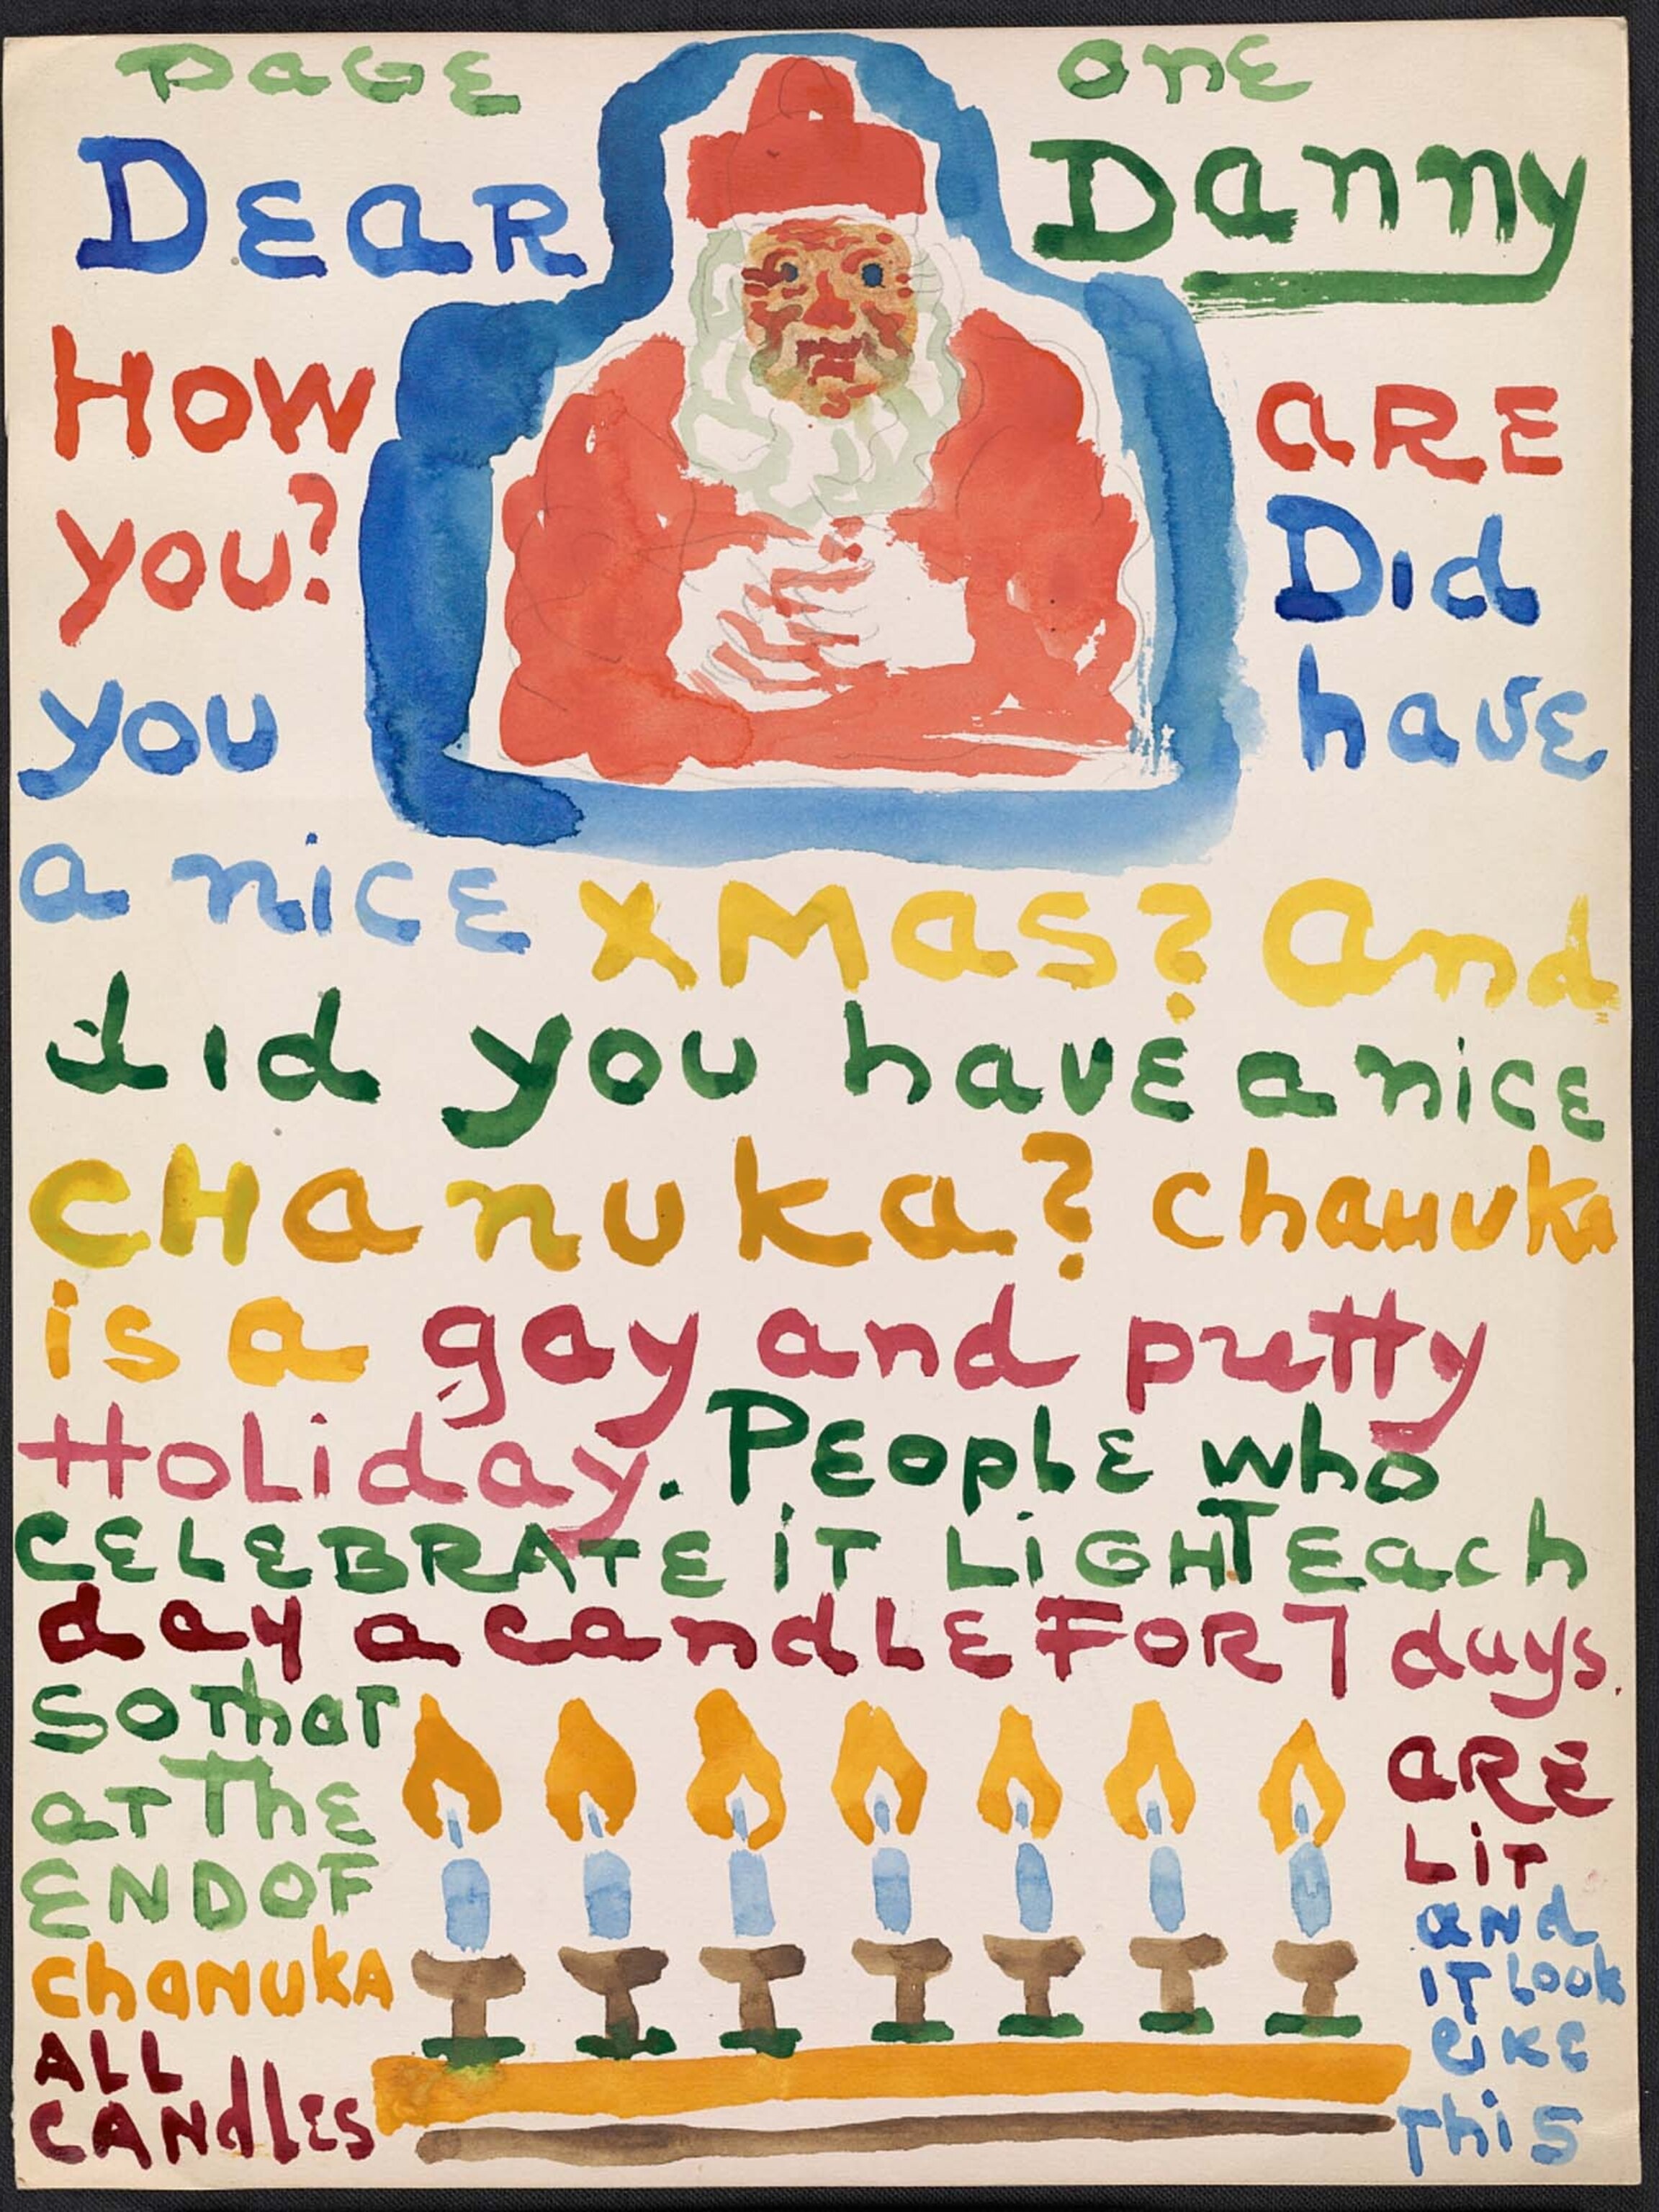 page one
DEAR Danny
How are
you? Did
you have
a nice xmas? And
did you have a nice
cHanuka? chanuka
is a gay and pretty
Holiday. People who
CELEBRATE iT LiGHT Each
day a candLE FOR 7 days.
so that
at the
END OF
chanuka
ALL
CANdles
are
Lit
and
it look
like
this